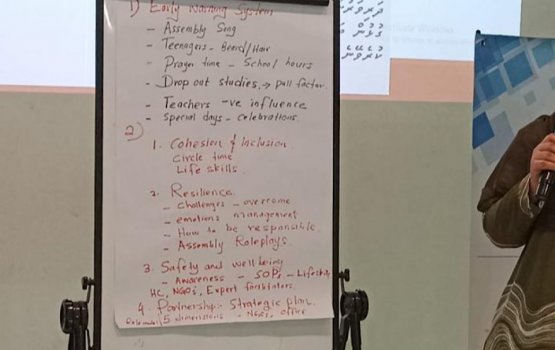 1) Early Warning System
- Assembly Song
- Teenagers - Beard/Hair
- Prayer time - School hours
- Drop out studies → pull factor.
- Teachers -ve influence
- Special days - celebrations
2)
1. Cohesion & Inclusion.
Circle time
Life skills
2. Resilience.
- challenges - overcome
- emotions management
- How to be responsible
- Assembly Roleplays.
3. Safety and well being
- Awareness - SOPs - Lifeskills
HC, NGOs, Expert facilitators.
4. Partnership: Strategic plan.
5 dimensions - NGOs, office